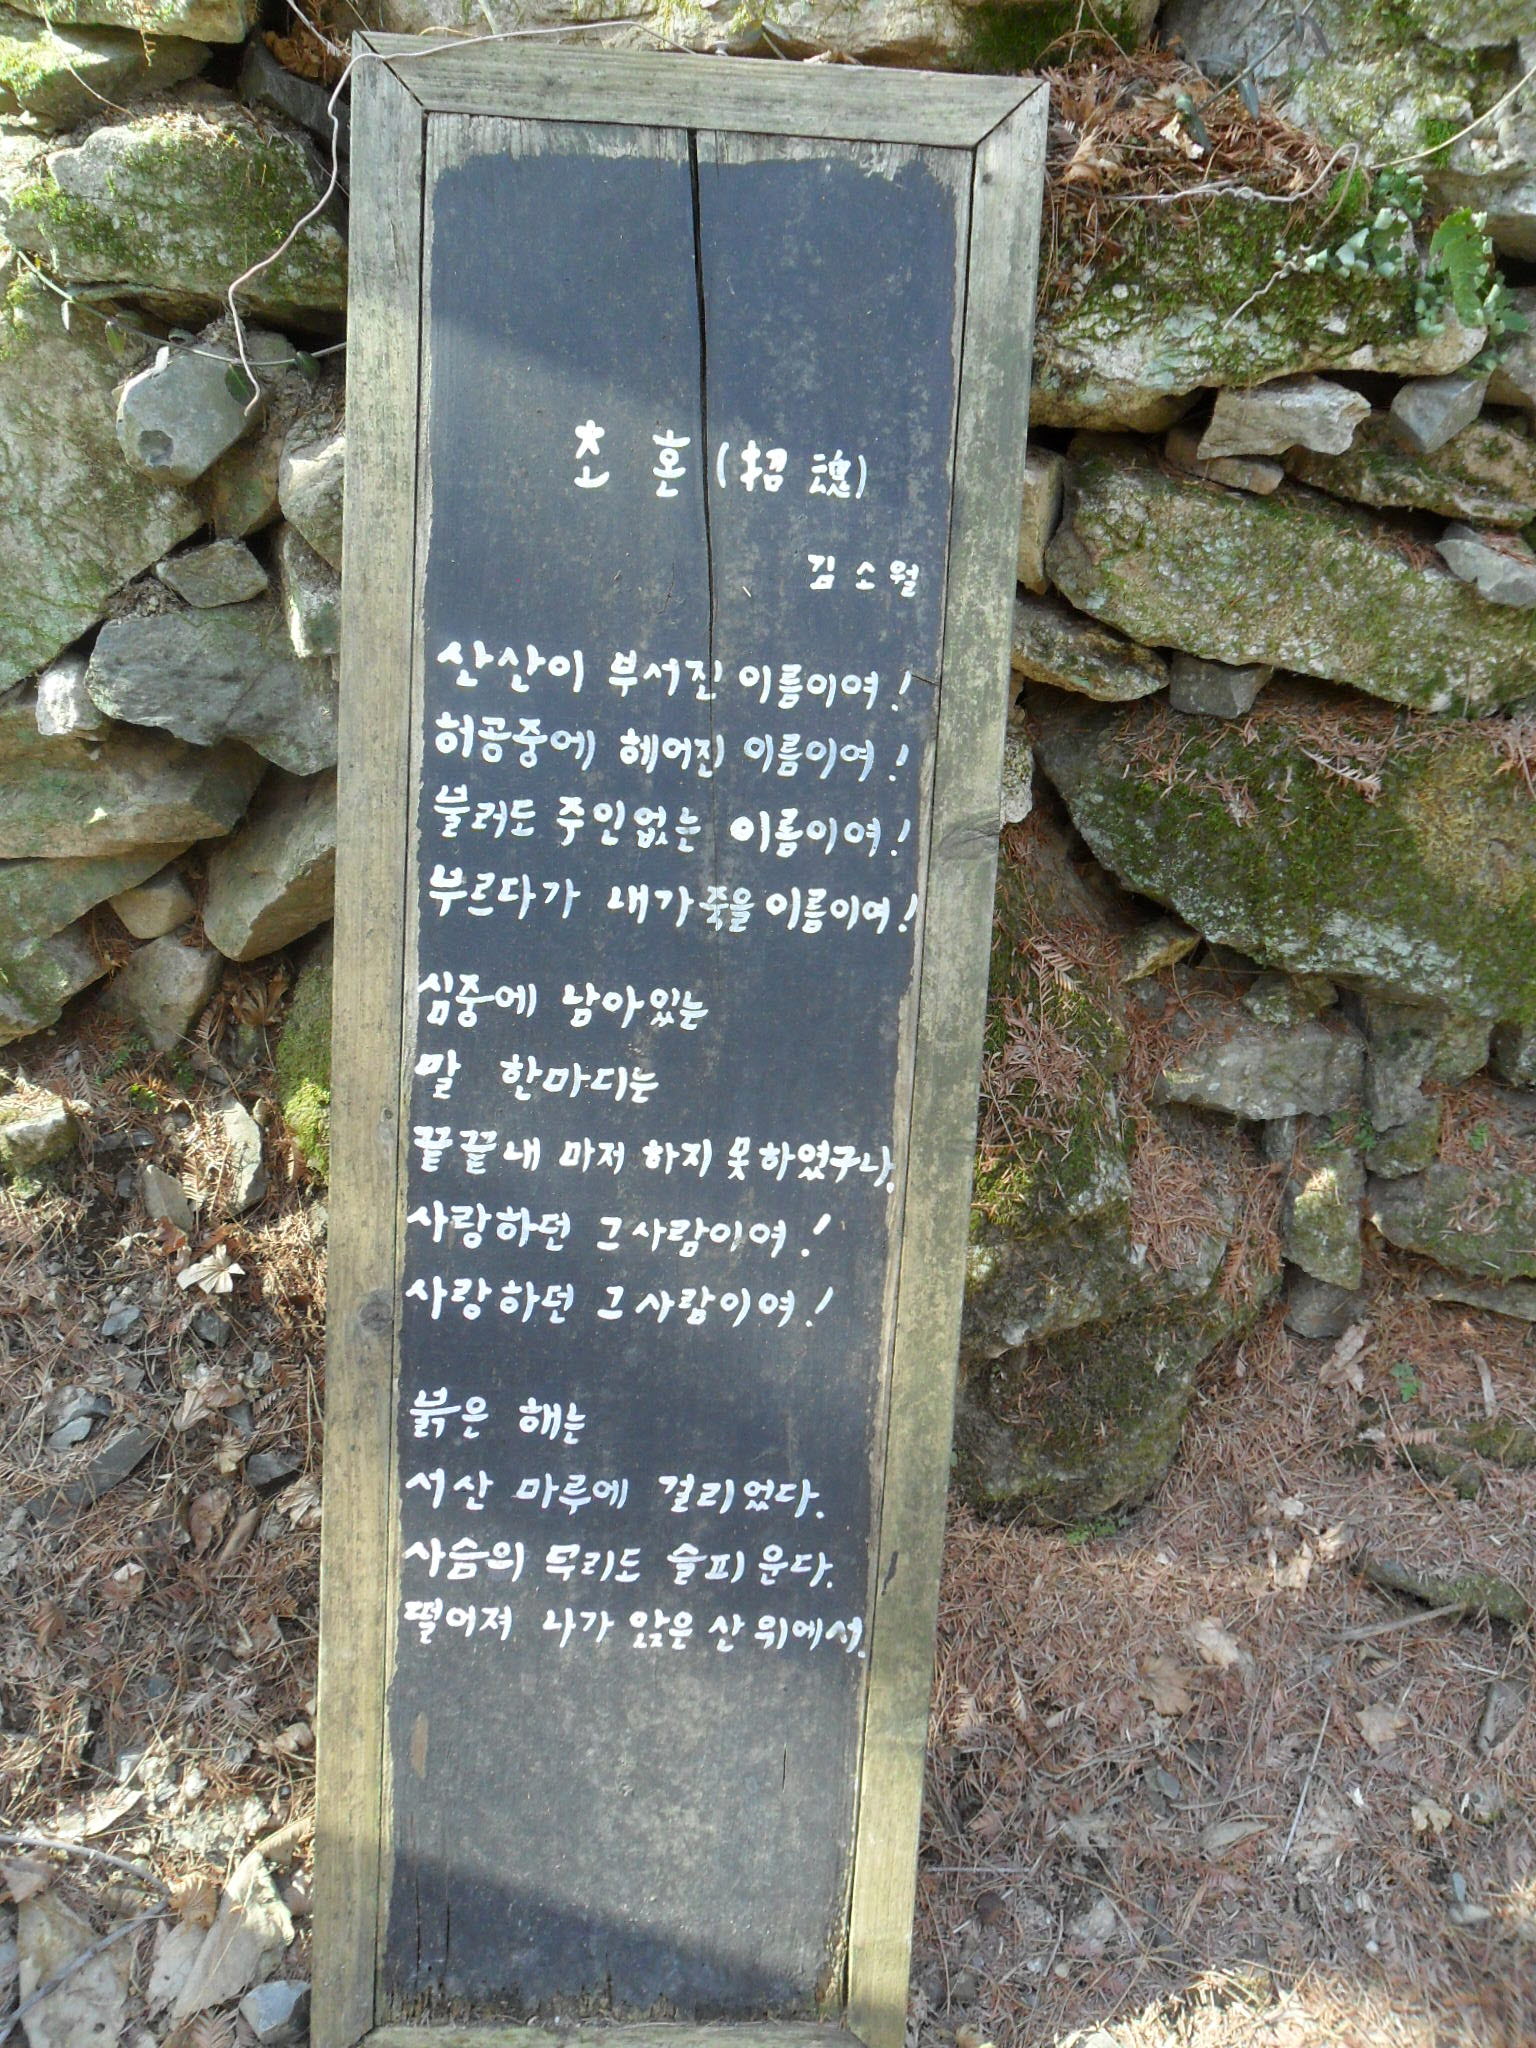 초 혼 (招 魂)
김 소 월
산산이 부서진 이름이여!
허공중에 헤어진 이름이여!
불러도 주인없는 이름이여!
부르다가 내가 죽을 이름이여!
심중에 남아있는
말 한마디는
끝끝내 마저 하지 못하였구나.
사랑하던 그 사람이여!
사랑하던 그 사람이여!
붉은 해는
서산 마루에 걸리었다.
사슴의 무리도 슬피 운다.
떨어져 나가 앉은 산 위에서.